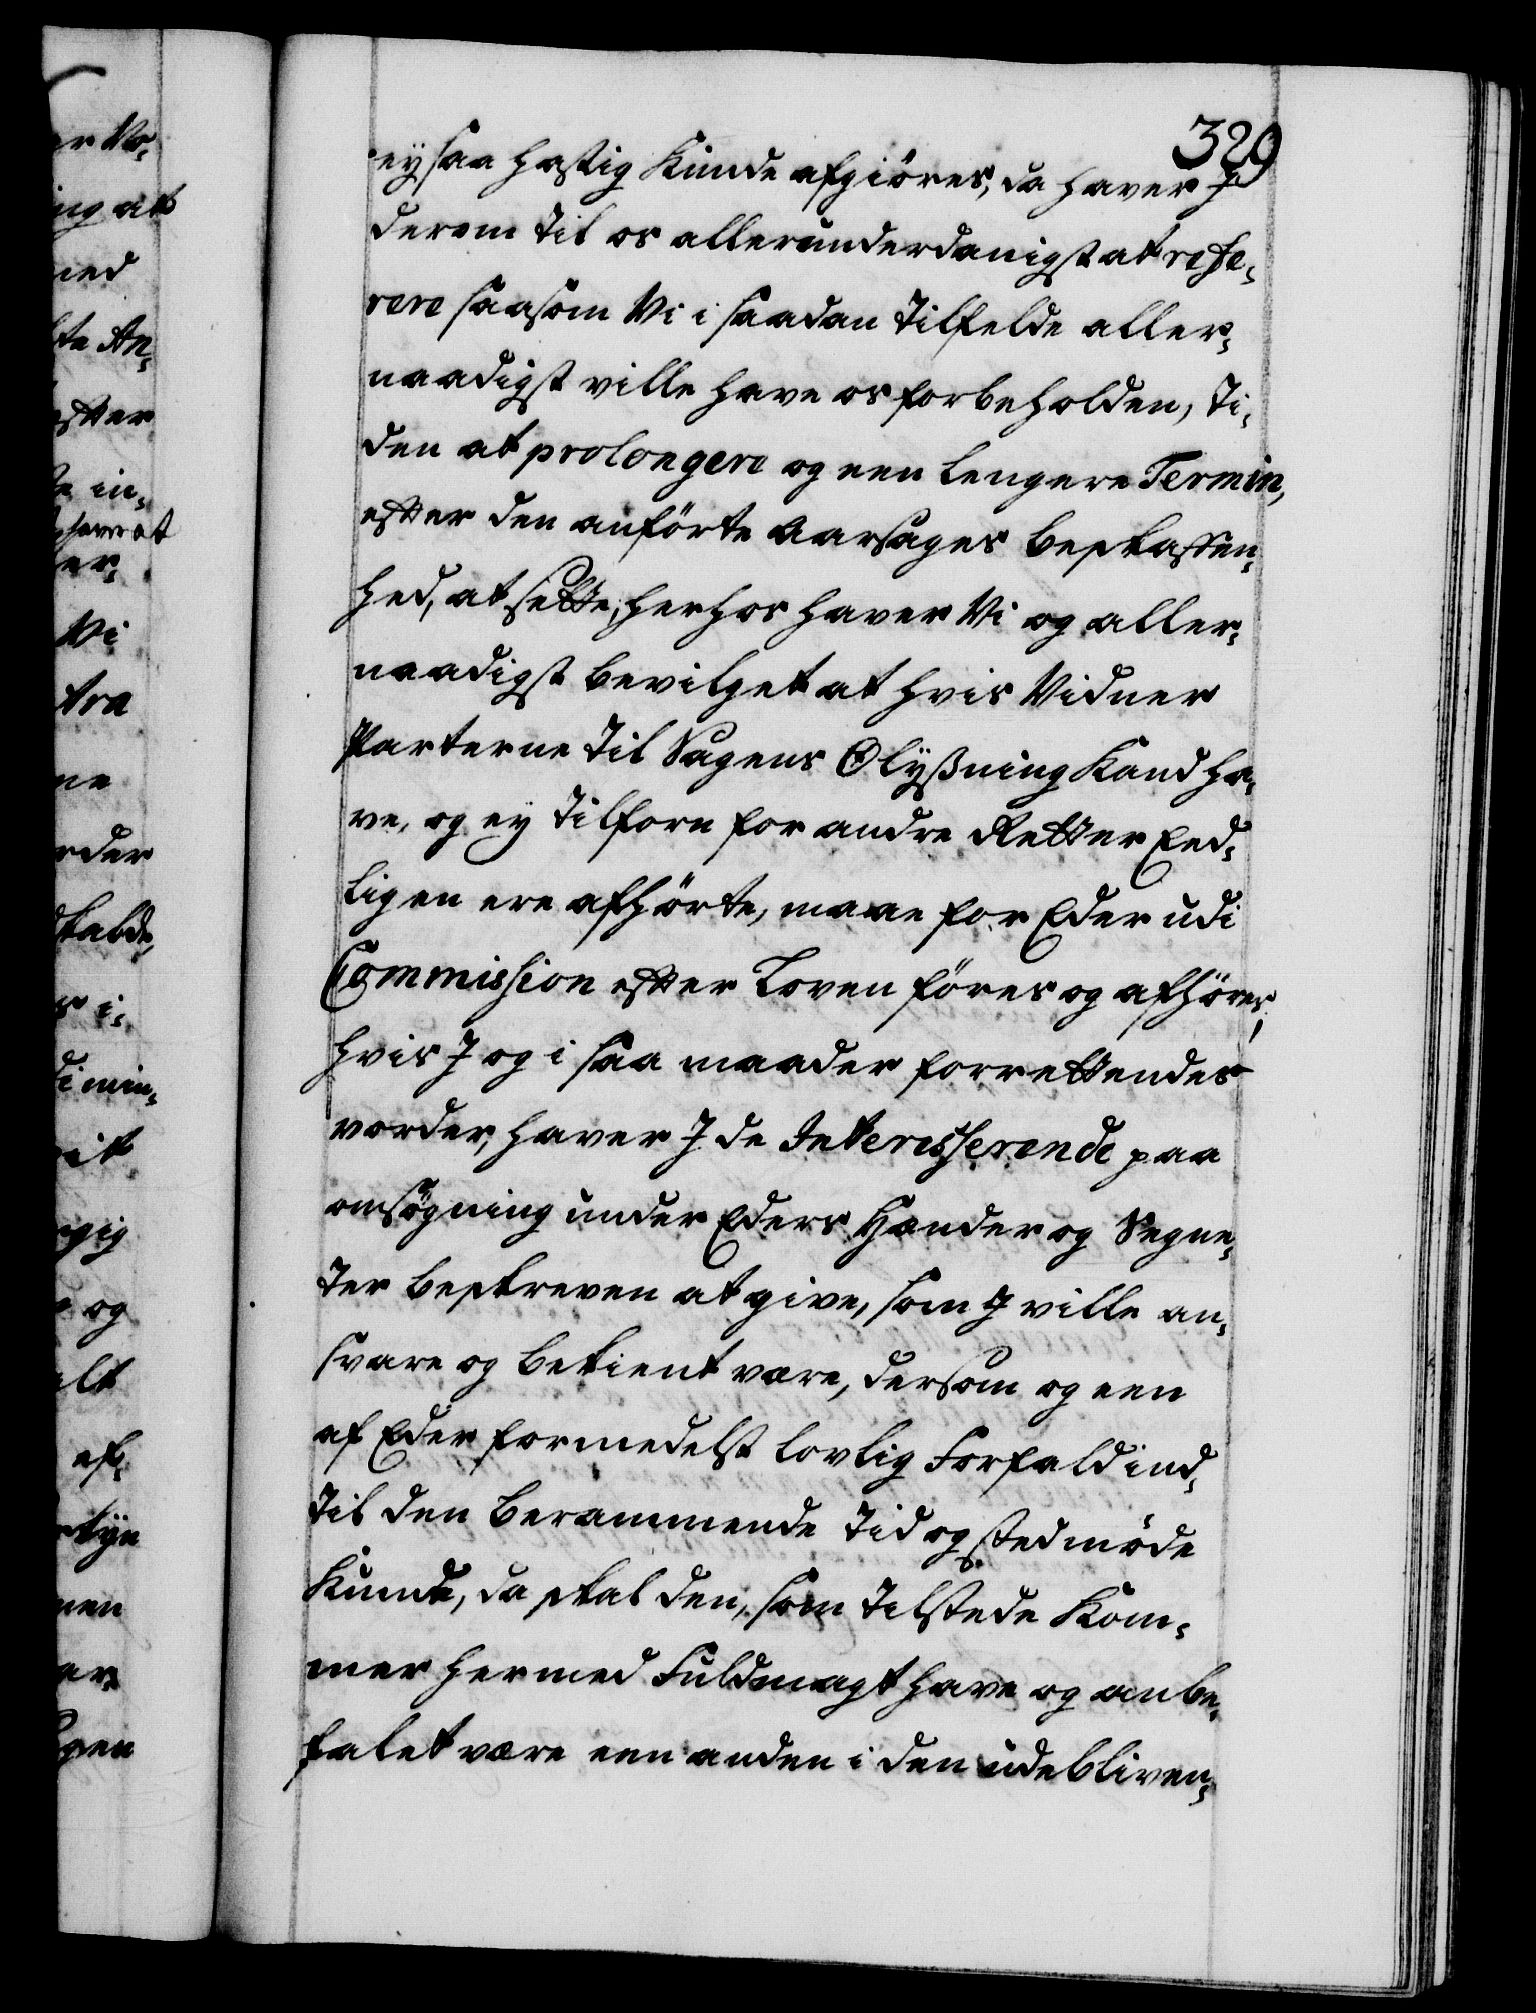 329
ey saa hastig Kunde afgiöres, da haver J
derom til os allerunderdanigst at refe-
rere saasom Vi i saadan Tilfelde aller-
naadigst ville have os forbeholden, Ti-
den at prolongere og een lengere Termin,
efter den anförte Aarsages beskaffen-
hed, at sette, herhos haver Vi og aller-
naadigst bevilget at hvis Vidner
Parterne til Sagens Olyßning Kand ha-
ve, og ey tilforn for andre Retter Eed-
ligen ere afhörte, maae for Eder udi
Commission efter Loven föres og afhöres,
hvis J og i saa maader forrettendes
vorder, haver J de Interesserende paa
omsögning under Eders Hænder og Segne-
ter beskreven at give, som J ville an-
svare og bekient være, dersom og een
af Eder formedelst lovlig Forfald ind-
til den berammende Tid og sted möde
Kunde, da skal den, som tilstede Kom-
mer hermed Fuldmagt have og anbe-
falet være een anden i den udebliven-